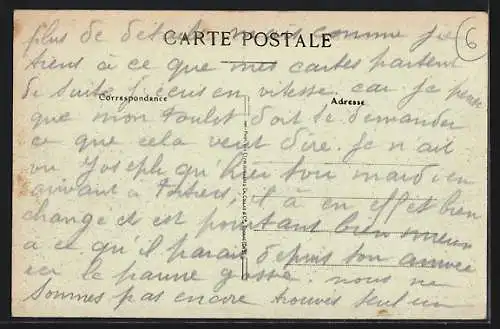 plus de détails mais comme je
CARTE POSTALE
6
tiens à ce que mes cartes partent
de suite j'écris en vitesse car je pense
Correspondance
Adresse
que mon Toulot doit se demander
ce que cela veut dire. Je n'ait
vu Joseph qu'hier tou mardi en
arrivant à il à en effet bien
change et est pourtant bien mieux
a ce qu'il parait depuis son arrivée
ici le pauvre gosse. nous ne
sommes pas encore trouvés seul un